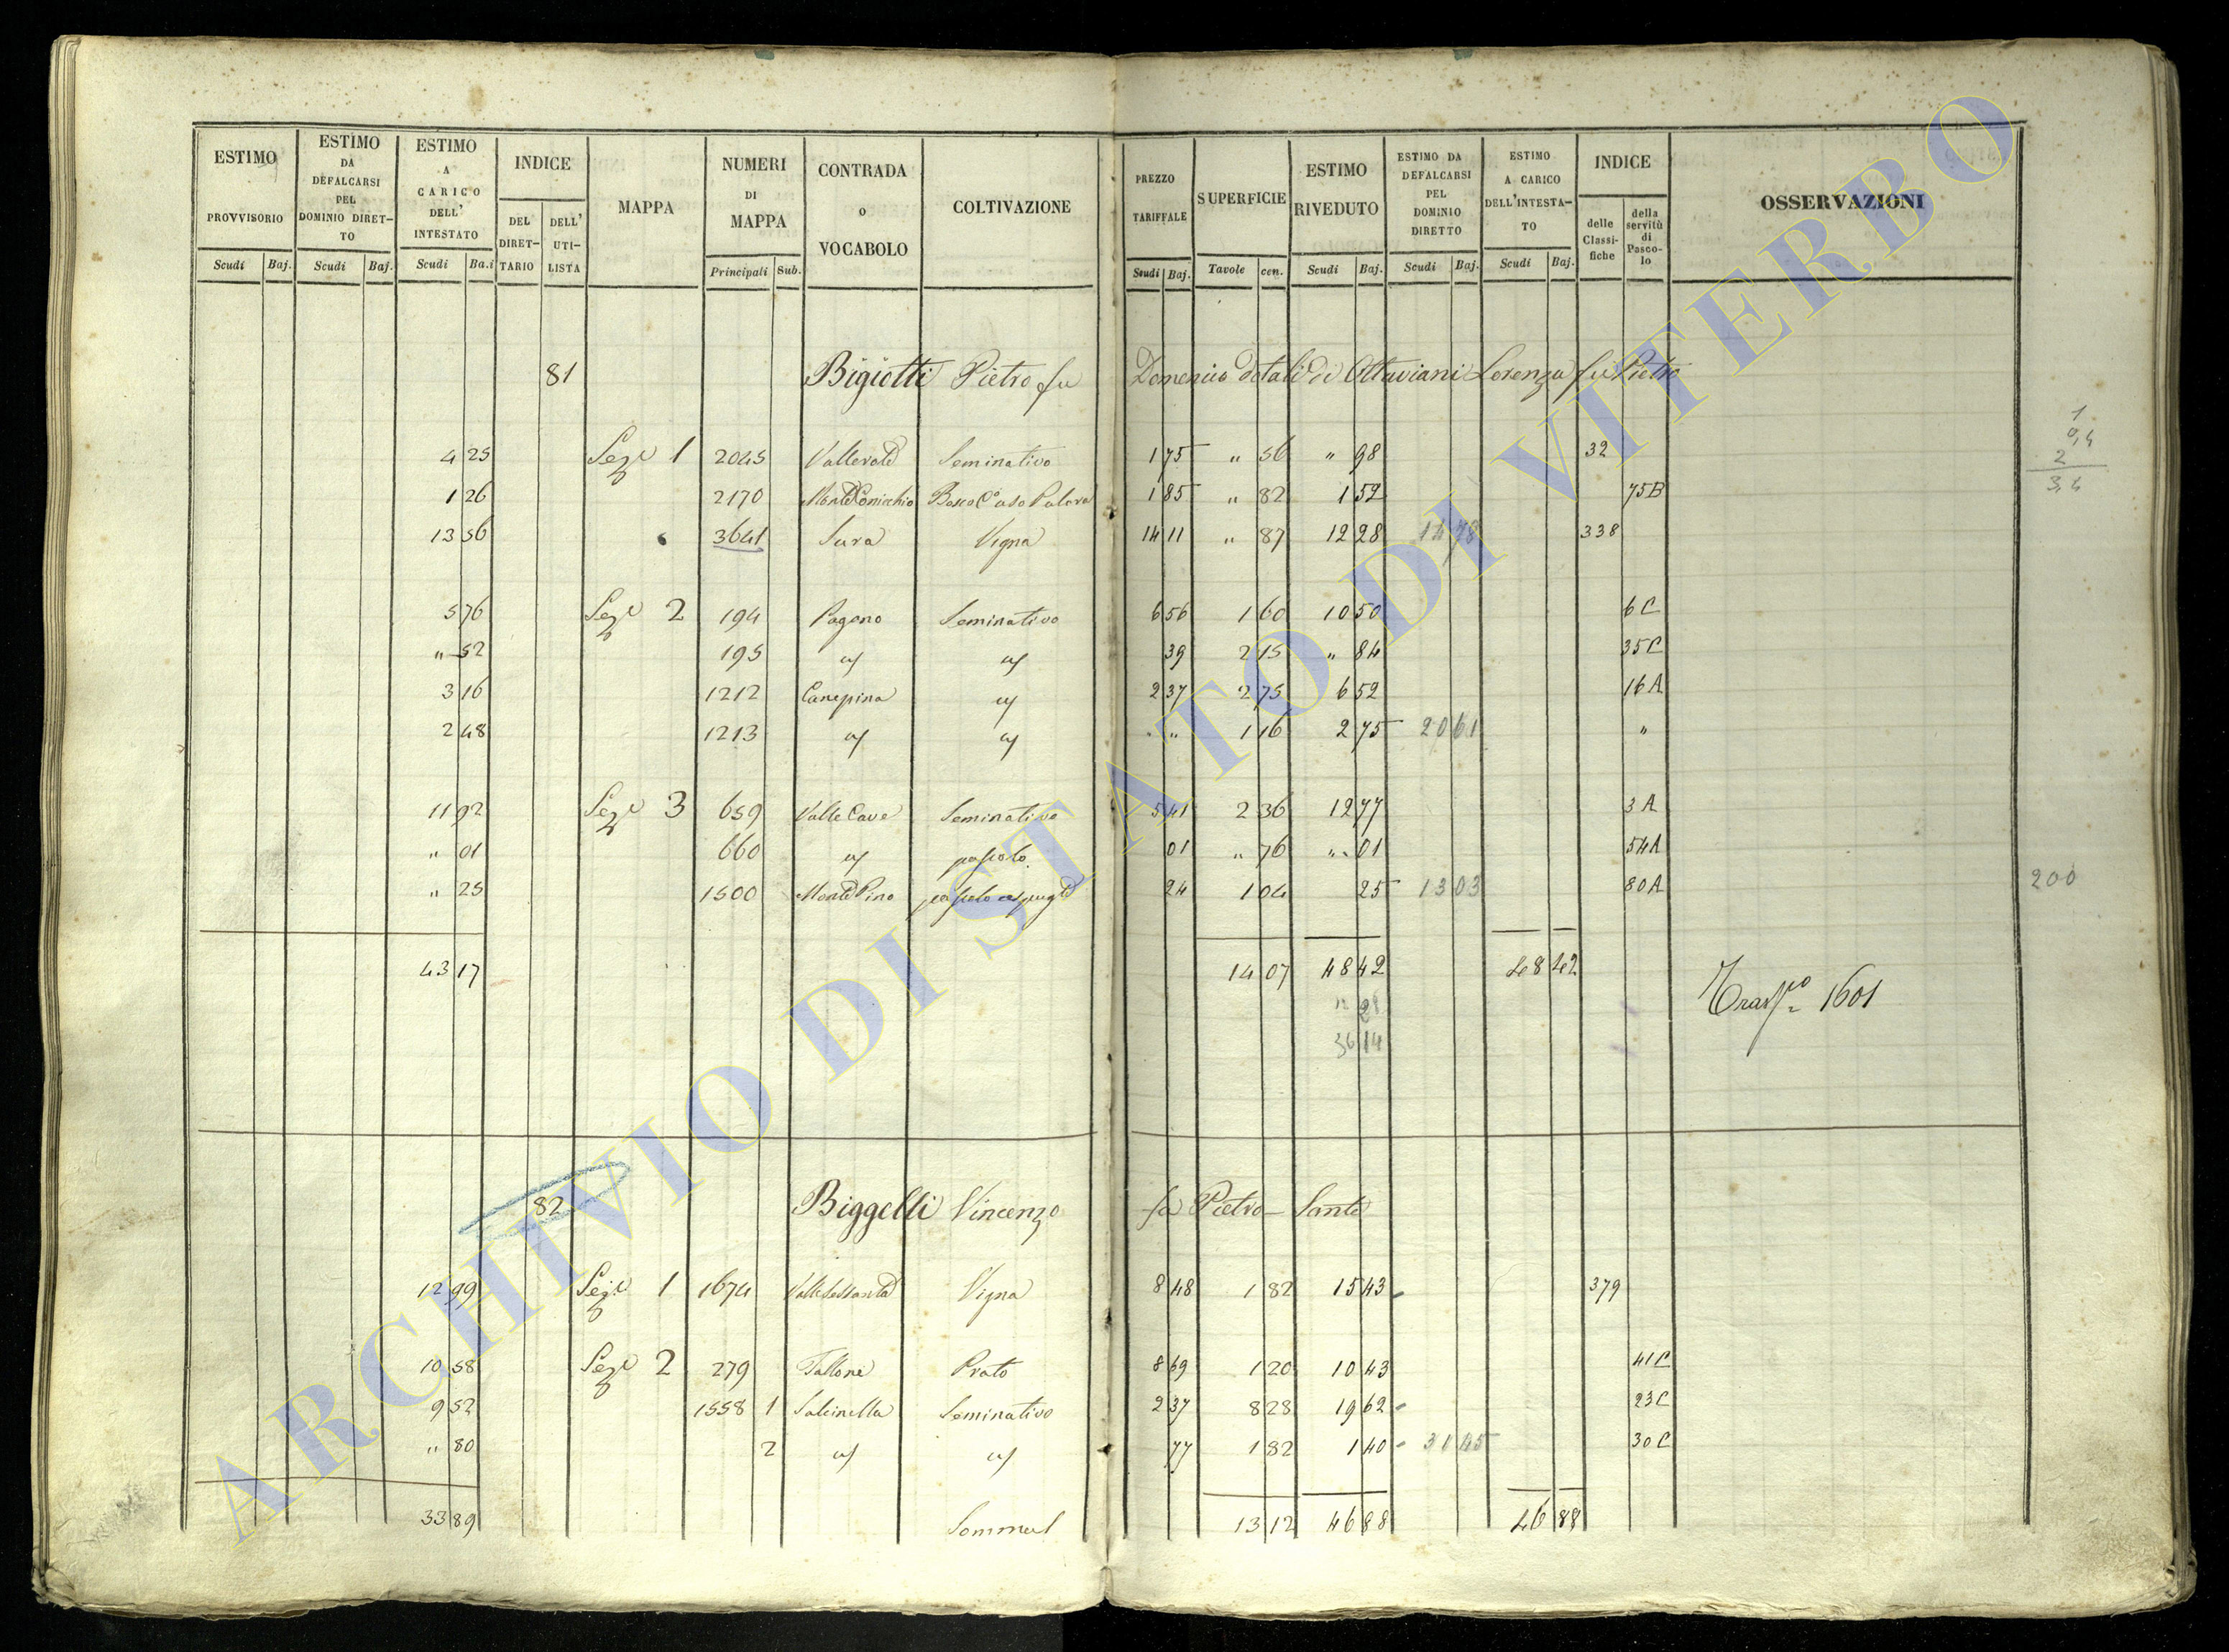 ESTIMO PROVVISORIO Scudi Baj. ESTIMO DA DEFALCARSI PEL DOMINIO DIRETTO Scudi Baj. ESTIMO A CARICO DELL' INTESTATO Scudi Ba.i INDICE DEL DIRETTARIO DELL' UTILISTA MAPPA NUMERI DI MAPPA Principali Sub. CONTRADA o VOCABOLO COLTIVAZIONE PREZZO TARIFFALE Scudi Baj. SUPERFICIE Tavole cen. ESTIMO RIVEDUTO Scudi Baj. ESTIMO DA DEFALCARSI PEL DOMINIO DIRETTO Scudi Baj. ESTIMO A CARICO DELL'INTESTATO Scudi Baj. INDICE delle Classifiche della servitù di Pascolo OSSERVAZIONI
81 Bigiotti Pietro fu Domenico dotali di Ottaviani Lorenza fu Pietro
4 25 Sezе 1 2045 Seminativo 1 75 " 56 " 98 32
1 26 2170 1 85 " 82 1 52 75B
13 56 3641 Sura Vigna 14 11 " 87 12 28 14 78 338
5 76 Seze 2 194 Pagono Seminativo 6 56 1 60 10 50 6 C
" 52 195 " " 39 2 15 " 84 35C
3 16 1212 Canepina " 2 37 2 75 6 52 16 A
2 48 1213 " " " " 1 16 2 75 20 61 "
11 92 Seze 3 659 Valle Cave Seminativo 5 41 2 36 12 77 3 A
" 01 660 " pascolo 01 " 76 " 01 54A
" 25 1500 Monte Pino pascolo 24 1 04 25 13 03 80A
43 17 14 07 48 42 48 42
12 28
36 14
Trasp.to 1601
1
0,4
2
3,4
200
82 Biggelli Vincenzo fu Pietro Sante
12 99 Seze 1 1674 Vigna 8 48 1 82 15 43 379
10 58 Seze 2 279 Tallone Prato 8 69 1 20 10 43 41C
9 52 1558 1 Salcinella Seminativo 2 37 8 28 19 62 23C
" 80 2 " " 77 1 82 1 40 31 45 30C
33 89 13 12 46 88 46 88
ARCHIVIO DI STATO DI VITERBO